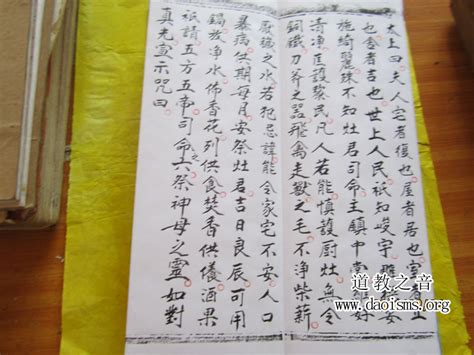 太上曰夫人宅者復也屋者居也室者止
也舍者吉也世上人民祇知峻宇雕牆安
施綺麗殊不知灶君司命主鎮中宮如好
清净匡護黎民凡人若能慎護厨灶無令
銅鐵刀斧之器飛禽走獸之毛不净柴薪
厭穢之水若犯忌諱能令家宅不安人口
暴病生期每月安祭灶君吉日良辰可用
鍋放净水佈香花列供食焚香供儀酒果
祇請五方五帝司命六祭神母之靈如對
真光宣示咒曰
道教之音
www.daoisms.org